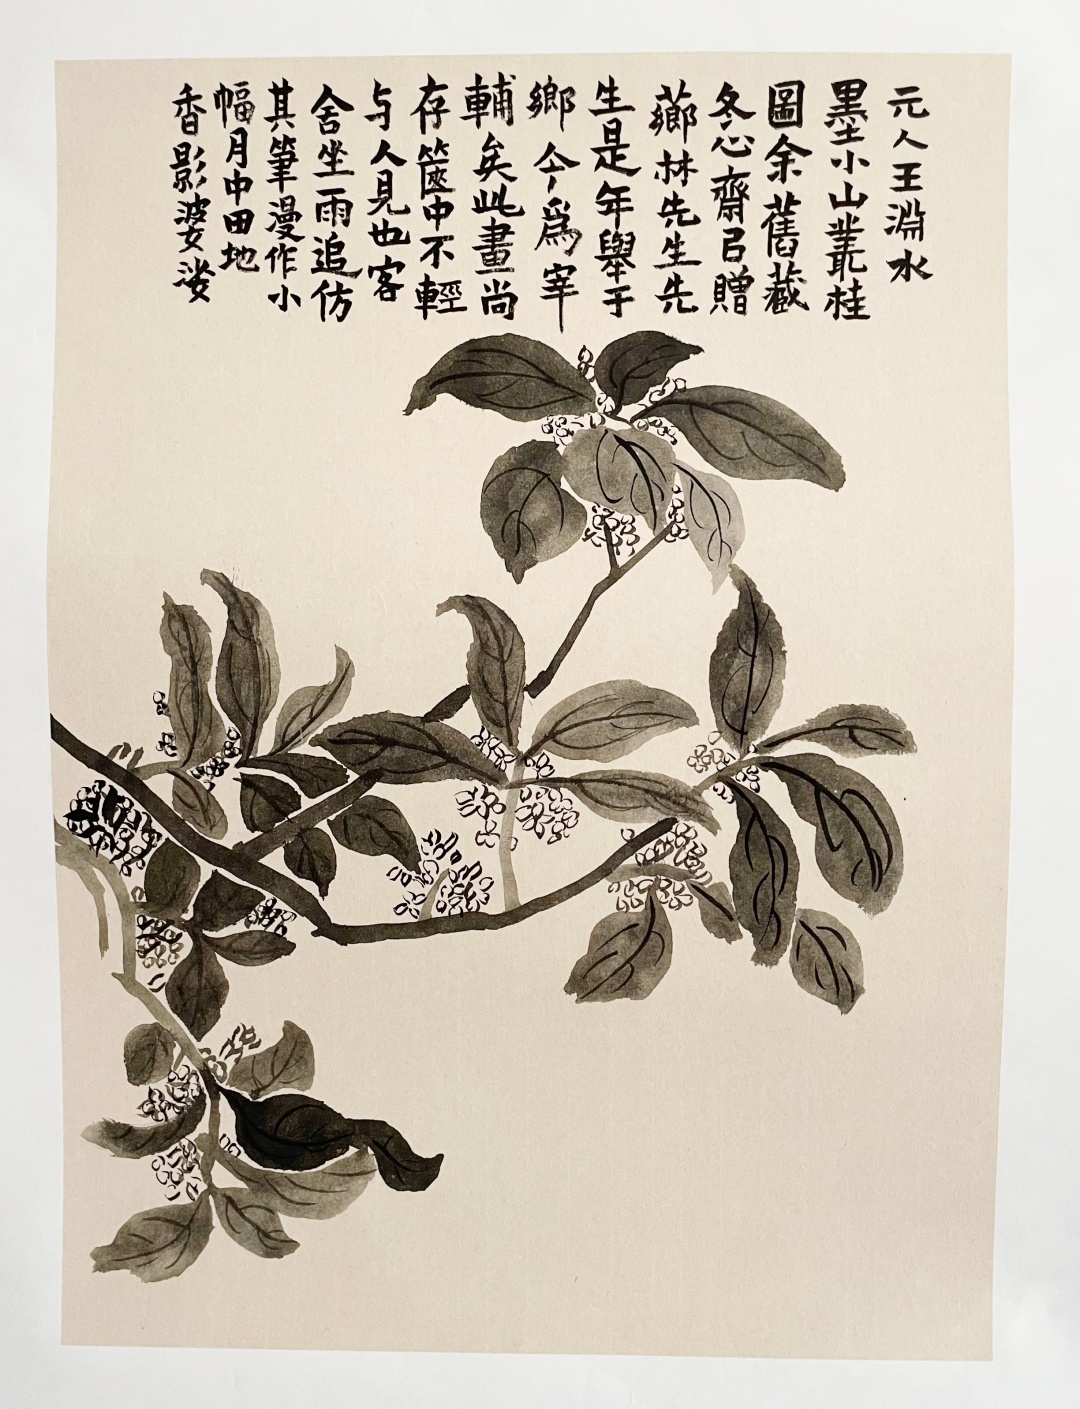 元人王淵水
墨小山叢桂
圖余舊藏
冬心齋㠯贈
薌林先生先
生是年舉于
鄉今爲宰
輔矣此畫尚
存篋中不輕
与人見也客
舍坐雨追仿
其筆漫作小
幅月中田地
香影婆娑